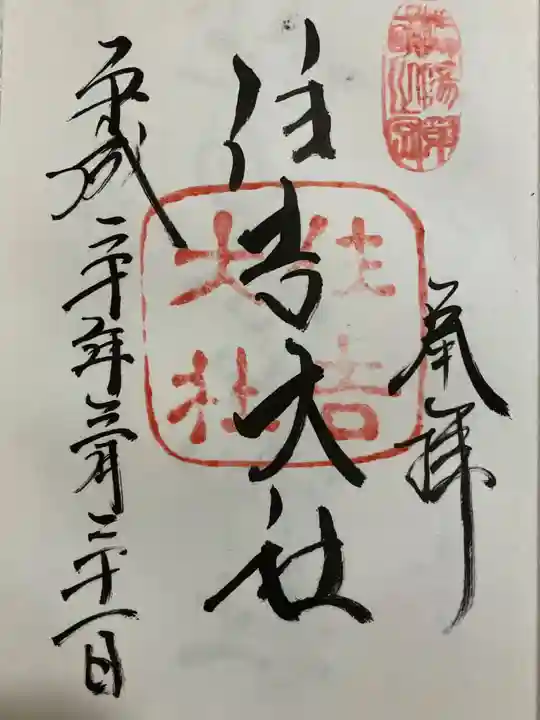 奉拝
住吉大社
住吉
大社
平成三十年三月三十一日